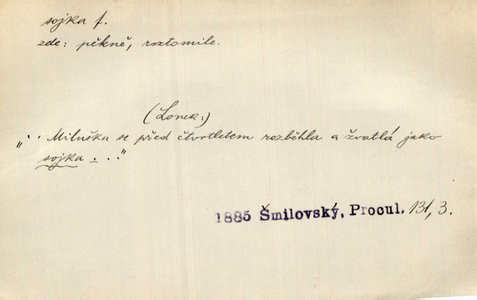 sojka f.
zde: pěkně, roztomile.
(Lonek:)
"·· Miluška se před čtvrtletem rozběhla a žvatlá jako
sojka ...."
1885 Šmilovský, Procul. 131, 3.